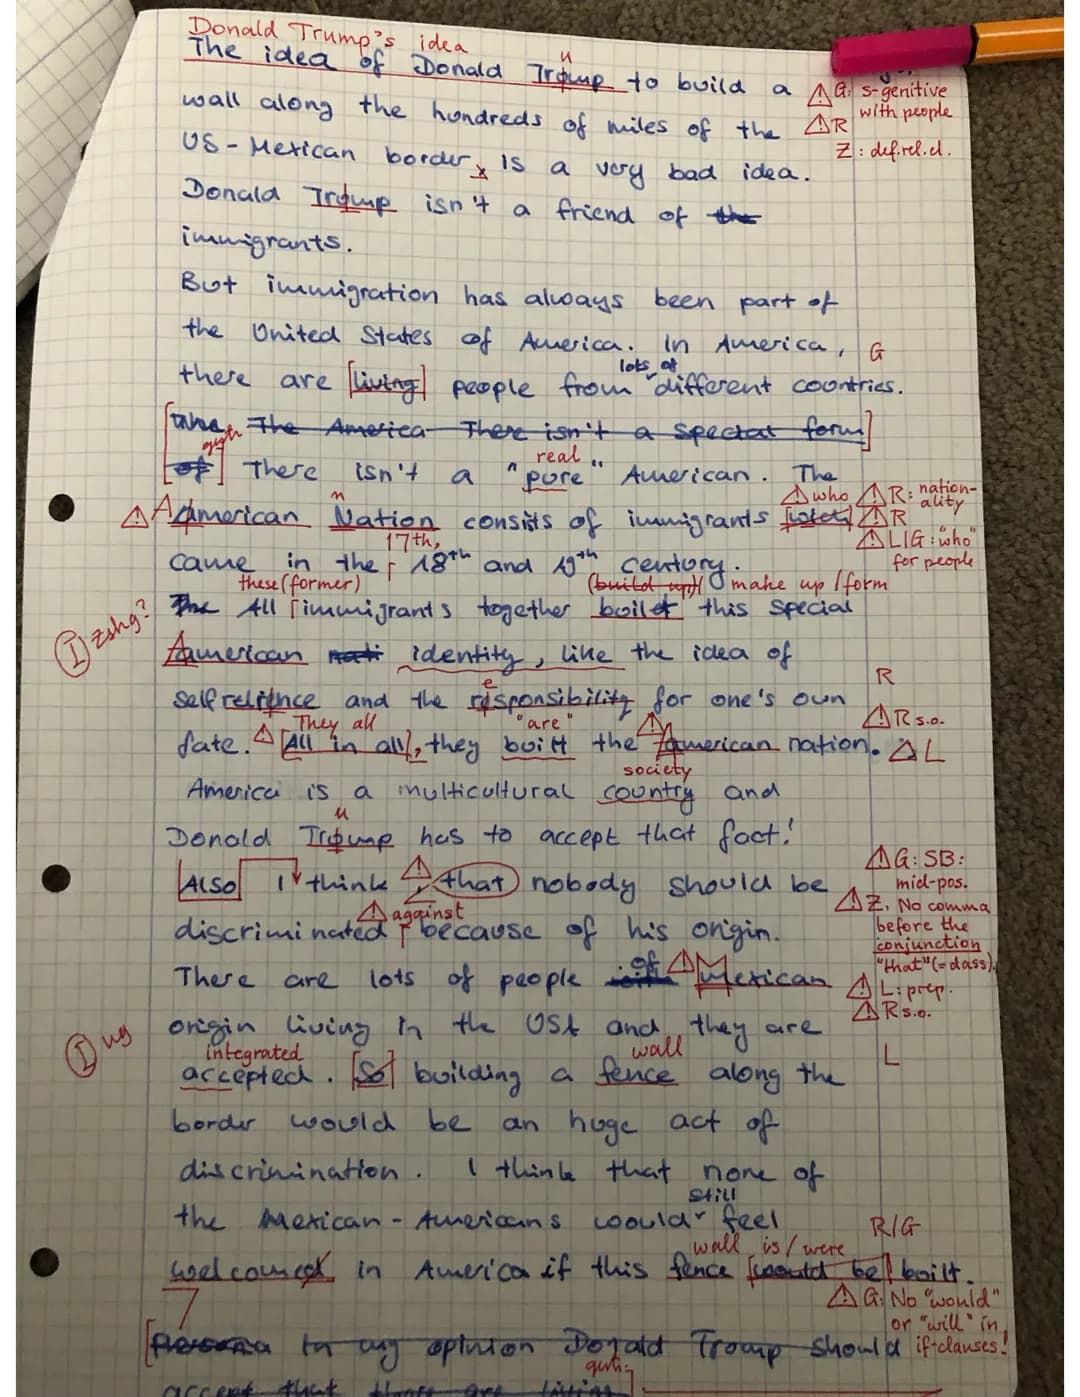 Donald Trump's idea
The idea of Donald Tromp to build a
u
G: s-genitive
with people
wall along the hundreds of miles of the
R
Z: def.rel.cl.
US-Mexican border, is a very bad idea.
x
Donald Tromp isn't a friend of the
immigrants.
But immigration has always been part of
the United States of America. In America,
G
lots of
there are [living] people from different countries.
The America There isn't a special form
of] There isn't a "pure" American. The
real
who
R: nation-
ality
American Nation consists of immigrants
n
R
L/G: "who"
for people
17th,
came in the 18th and 19th century.
these (former)
(build up) make up / form
The All immigrants together boilet this special
I zshg?
American nati identity, like the idea of
e
R
selfrelience and the risponsibility for one's own
They all
"are"
R s.o.
fate. [All in all], they built the American nation.
L
society
America is a multicultural country and
u
Donald Tromp has to accept that fact!
G: SB:
mid-pos.
Also I think, that nobody should be
Z. No comma
before the
conjunction
"that" (= dass)
against
discriminated because of his origin.
of
There are lots of people with Mexican
L: prep.
R s.o.
origin living in the USA and they are
I ug
integrated
wall
L
accepted. [So] building a fence along the
border would be an huge act of
discrimination. I think that none of
still
the Mexican-Americans would feel
R/G
wall is/were
welcomed in America if this fence [would be] built.
G: No "would"
or "will" in
if-clauses!
In my opinion Donald Tromp should
accept that there are living